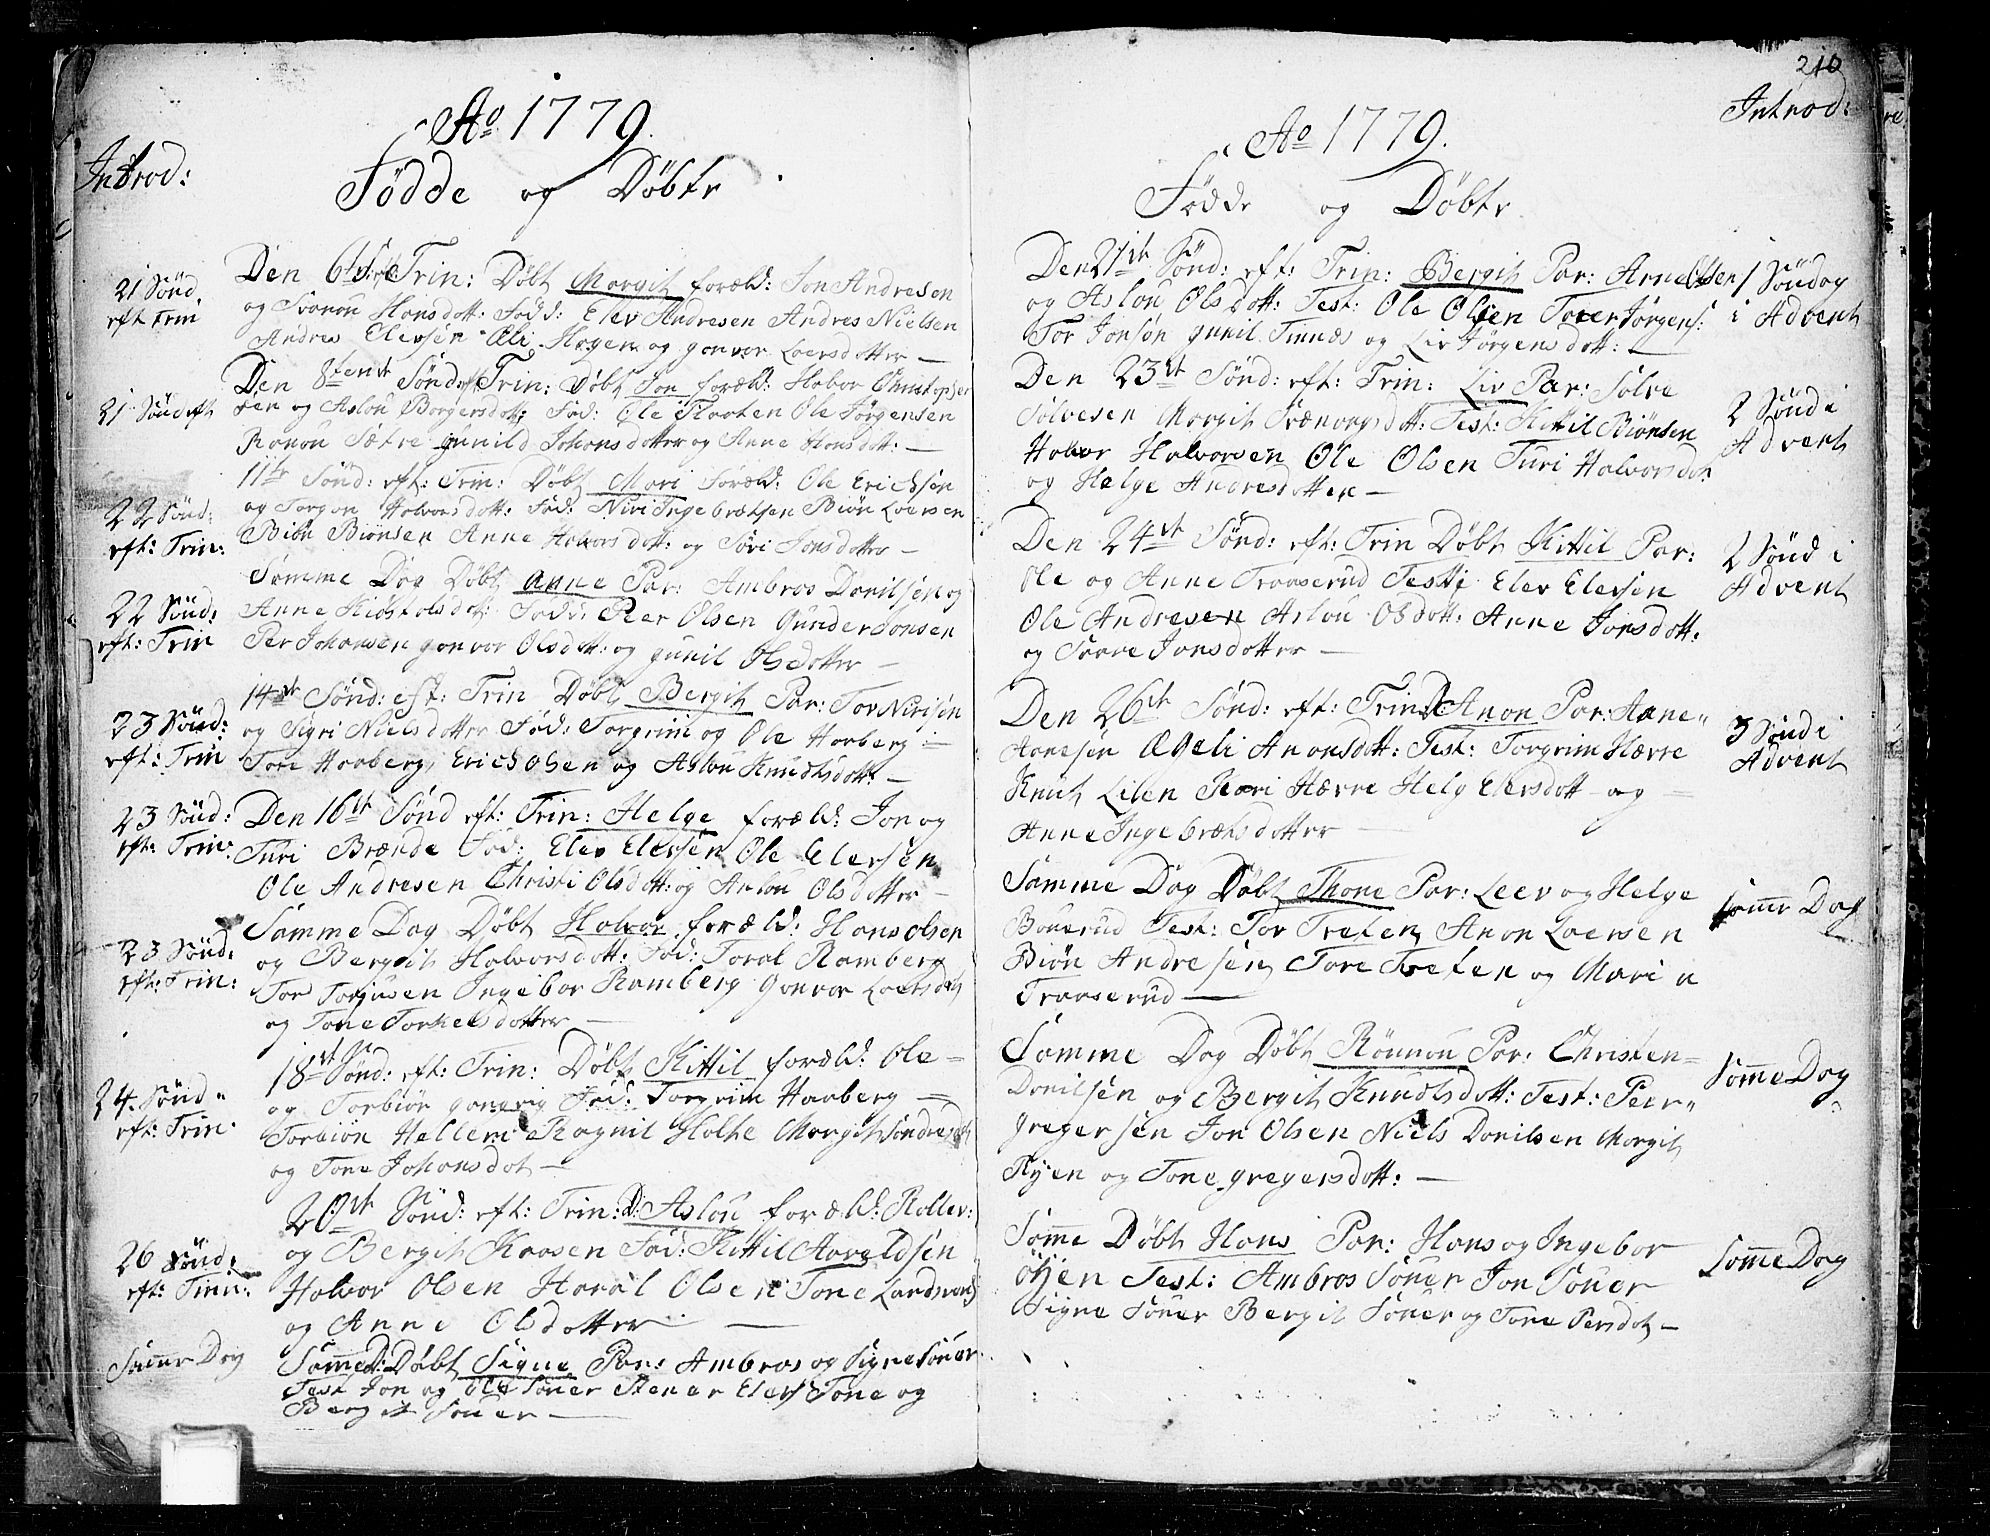 Ao 1779.
Introd:
Födde og Döbte
21 Sönd
eft Trin
Den 6te S: eft: Trin: Döbt Margit foræld: Jon Andresen
og Svanou Hansdott: Fadd: Elev Andresen Andres Nielsen
Andres Elevsen Eli Hagen og gonvor Loersdotter —
21 Sönd eft
Den 8tende Sönd eft Trin: Döbt Jon foræld: Halvor Christopher
sen og Aslou Borgersdott: Fad: Ole Ole Jörgensen
Ranou Sætre gunild Johansdotter og Anne Hansdott: —
22 Sönd:
eft: Trin:
11te Sönd: eft: Trin: Döbt Mari Foræld: Ole Erichsen
og Torgon Halvorsdott: Fad: Niri Ingebretsen Biön Loersen
Biön Biönsen Anne Halvorsdott: og Siri Jonsdotter —
22 Sönd:
eft: Trin
Samme Dag Döbt Anne Par: Ambros Danilsen og
Anne Fad: Peer Olsen Gunder Jonsen
Per Johansen gonvor Olsdott: og gunil Olsdotter —
23 Sönd:
eft: Trin
14de Sönd: eft: Trin Döbt Bergit Par: Tor Nirisen
og Sigri Nielsdotter Fad: Torgrim og Ole Haaberg
Tore Haaberg, Erich Olsen og Aslou Knudtsdott: —
23 Sönd:
eft: Trin:
Den 16de Sönd eft: Trin: Helge foræld: Jon og
Turi Brænde Fad: Elev Elevsen Ole Elevsen
Ole Andresen Christi Olsdott: og Aslou Olsdotter —
23 Sönd:
eft: Trin:
Samme Dag Döbt Halvor foræld: Hans Olsen
og Bergit Halvorsdott: Fad: Toral Ramberg
Tor Torjusen Ingebor Ramberg Gonvor Loersdott
og Tone Torkelsdotter —
24. Sönd
eft: Trin:
18de Sönd: eft: Trin: Döbt Kittil foræld: Ole
og Torbiör Fad: Torgrim Haaberg
Torbiön Hellem Ragnil Holte Margit Sondresdt
og Tone Johansdot —
26 Sönd:
eft: Trin:
20de Sönd: eft: Trin: D: Aslou foræld: Rollev:
og Bergit Kaasen Fad: Kittil Aaraldsen
Halvor Olsen Haral Olsen Tone
og Anne Olsdotter —
Samme Dag
Samme D: Döbt Signe Par: Ambros og Signe Söuer
Test Jon og Ole Söuer Stener Elevs Tone og
Bergit Söuer —
210
Introd:
Ao 1779.
Födde og Döbte
Den 21de Sönd: eft: Trin: Bergit Par: Arne Olsen
og Aslou Olsdott: Test: Ole Olsen Torer Jörgens:
Tor Jonsön gunil Tinnæs og Liv Jörgensdott: —
1 Söndag
i Advent
Den 23de Sönd: eft: Trin: Liv Par: Sölve
Sölvesen Margit Svænongsdott: Test: Kittil Biönsen
Halvor Halvorsen Ole Olsen Turi Halvorsdot
og Helge Andresdotter —
2 Sönd i
Advent
Den 24de Sönd: eft: Trin Döbt Kittil Par:
Ole og Anne Traaserud Test: Elev Elevsen
Ole Andresen Aslou Olsdott: Anne Jonsdott:
og Svave Jonsdotter —
2 Sönd i
Advent
Den 26de Sönd: eft: Trin D: Anon Par: Aane
Aanesen Ægeli Anonsdott: Test: Torgrim Hærre
Knut Lien Kari Hærre Helg Elevsdott og
Anne Ingebretsdotter
3 Sönd i
Advent
Samme Dag Döbt Thone Par: Leev og Helge
Bouerud Test: Tor Treten Anon Loersen
Biön Andresen Tore Treten og Mari
Traaserud —
Samme Dag
Samme Dag Döbt Rönnou Par: Christen
Danilsen og Bergit Knudtsdott: Test: Peer
gregersen Jon Olsen Niels Danilsen Margit
Ryen og Tone gregersdott: —
Somme Dag
Somme Döbt Hans Par: Hans og Ingebor
Öyen Test: Ambros Söuer Jon Söuer
Signe Söuer Bergit Söuer og Tone Persdot —
Somme Dag